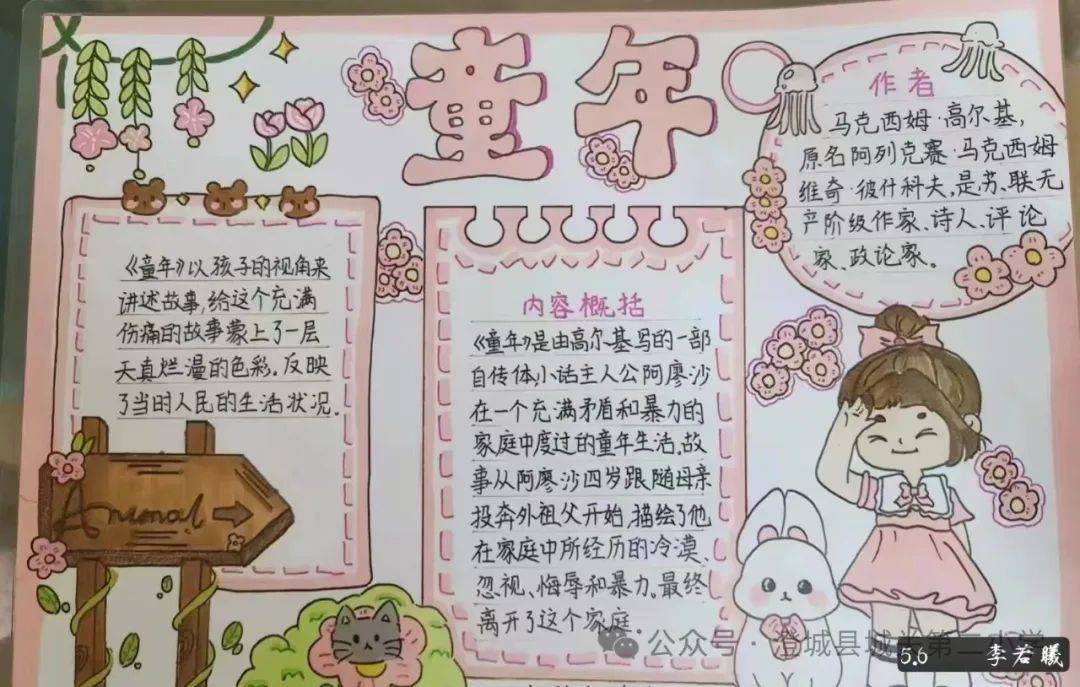 童年
作者
马克西姆·高尔基,
原名阿列克赛·马克西姆
维奇·彼什科夫,是苏、联无
产阶级作家、诗人、评论
家、政论家。
《童年》以孩子的视角来
讲述故事,给这个充满
伤痛的故事蒙上了一层
天真烂漫的色彩。反映
了当时人民的生活状况。
Animal
内容概括
《童年》是由高尔基写的一部
自传体小话主人公阿廖沙
在一个充满矛盾和暴力的
家庭中度过的童年生活。故
事从阿廖沙四岁跟随母亲
投奔外祖父开始,描绘了他
在家庭中所经历的冷漠、
忽视、侮辱和暴力。最终
离开了这个家庭。
公众号·澄城县城
第二小学
5.6 李若曦